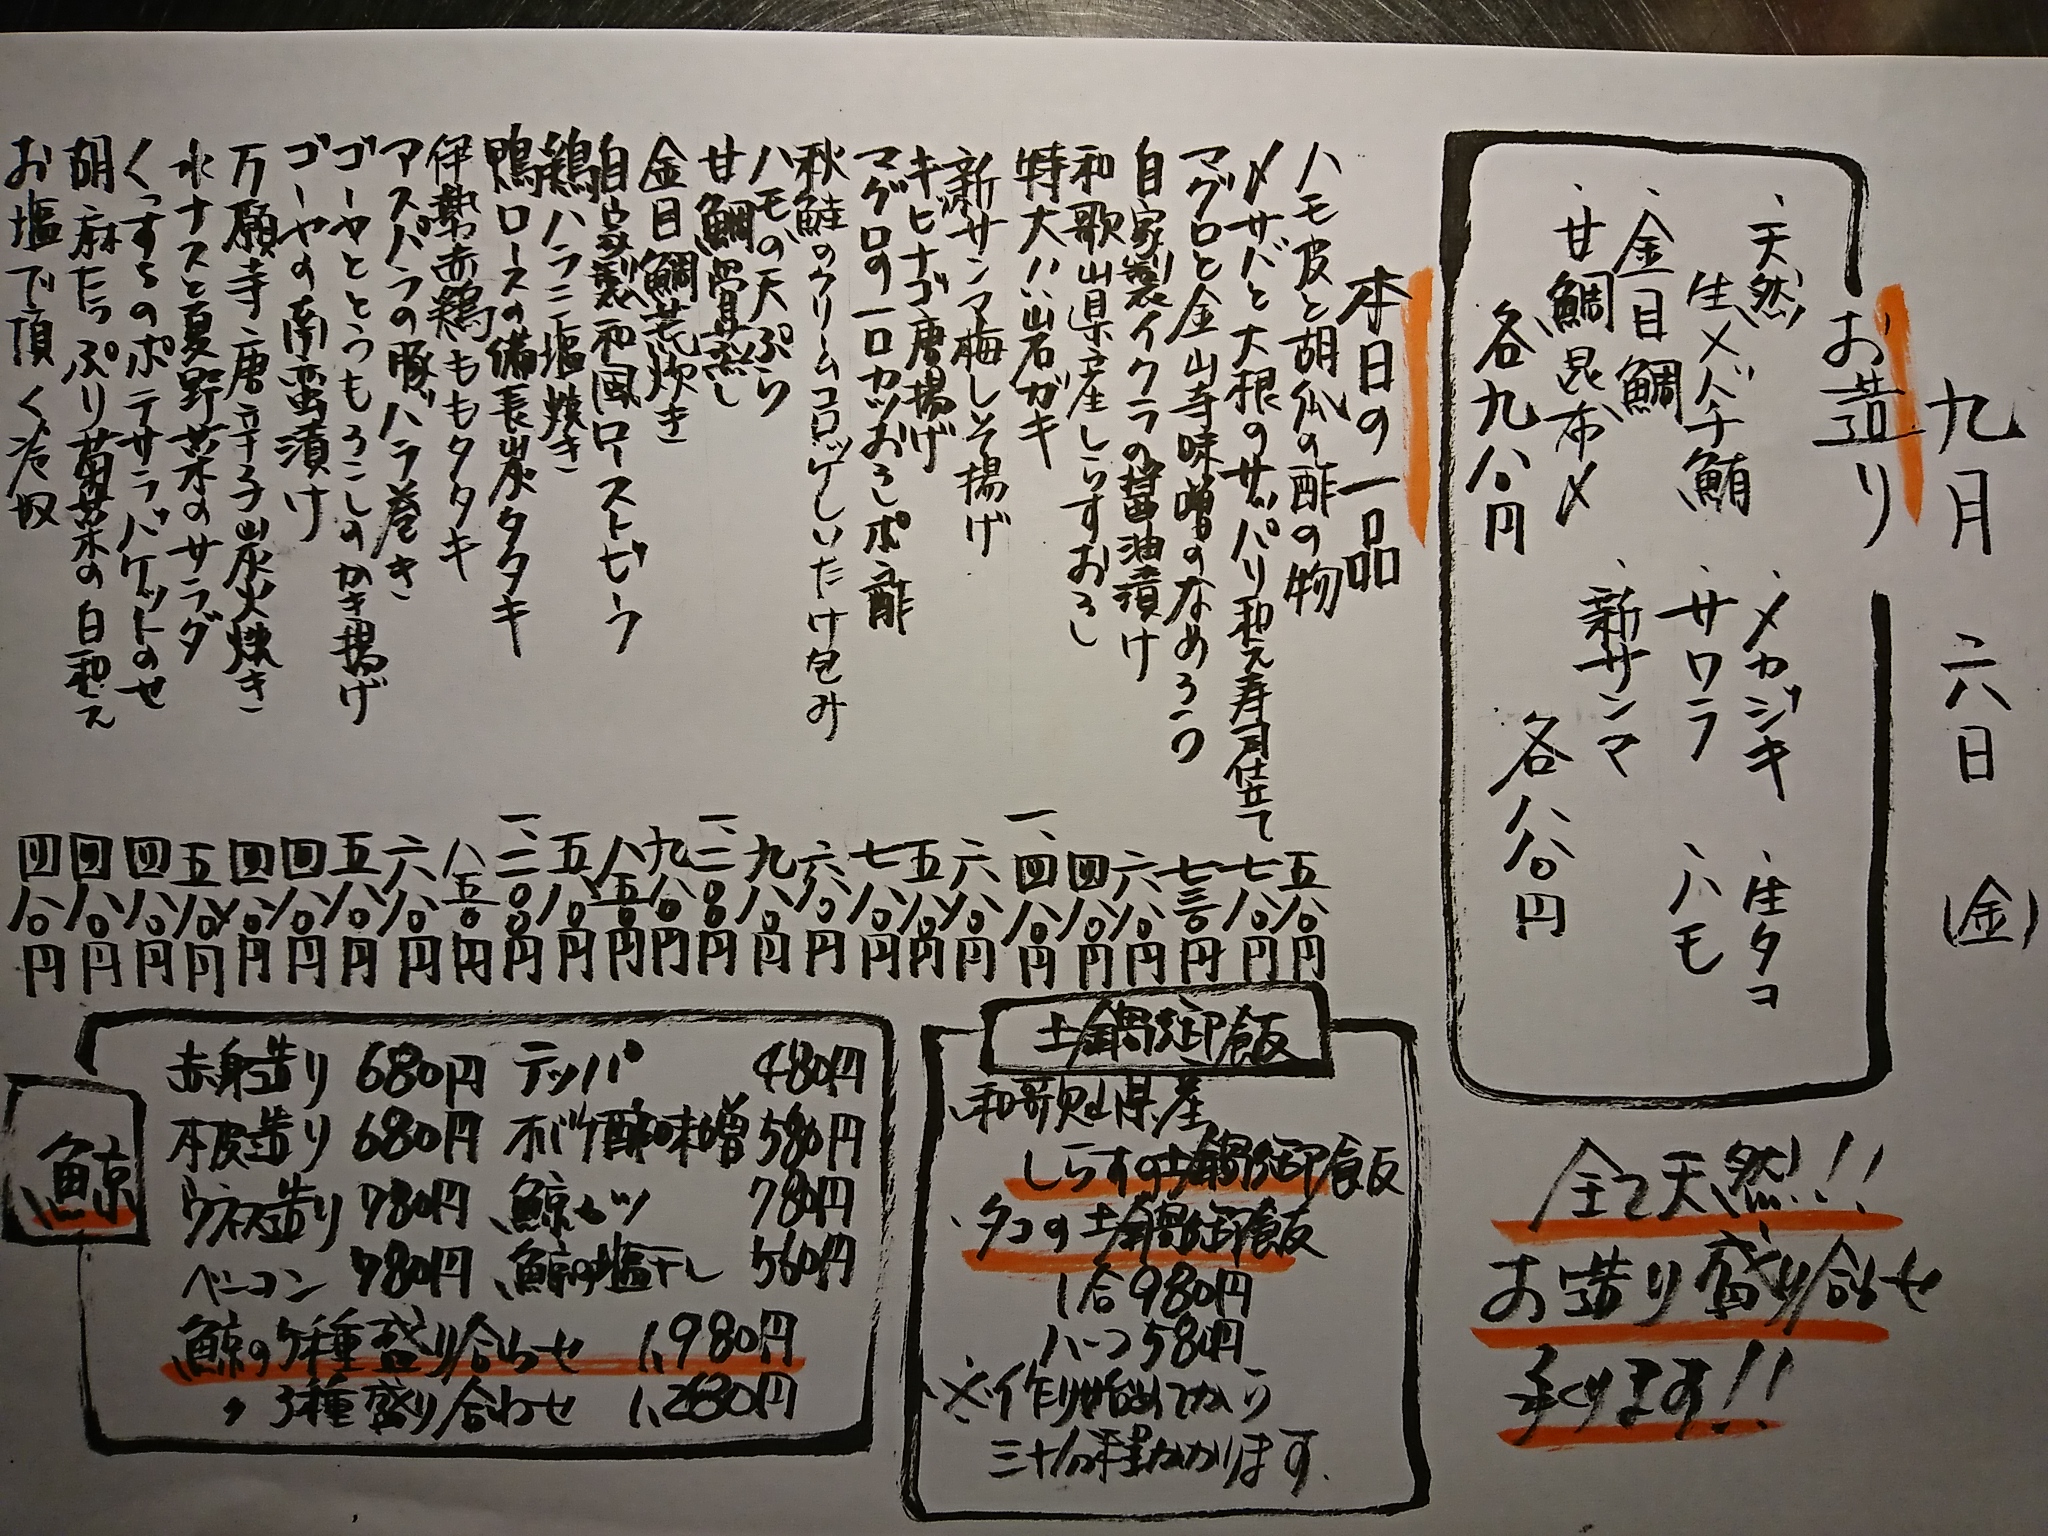 九月六日(金)
お造り
、天然生メバチ鮪
、金目鯛
、甘鯛昆布〆
各九八〇円
、メカジキ
、サワラ
、新サンマ
、生タコ
、ハモ
各八八〇円
全て天然!!
お造り盛り合わせ
承ります!!
本日の一品
ハモ皮と胡瓜の酢の物 五八〇円
〆サバと大根のザパリ和え寿司仕立て 七八〇円
マグロと金山寺味噌のなめろう 七三〇円
自家製イクラの醤油漬け 六八〇円
和歌山県産しらすおろし 四八〇円
特大岩ガキ 一、四八〇円
新サンマ梅しそ揚げ 六八〇円
キビナゴ唐揚げ 五八〇円
マグロの一口カツおろしポン酢 七八〇円
秋鮭のクリームコロッケしいたけ包み 六八〇円
ハモの天ぷら 九八〇円
甘鯛骨蒸し 一、二八〇円
金目鯛荒炊き 九八〇円
自家製和風ローストビーフ 八五〇円
鶏ハラミ塩焼き 五八〇円
鴨ロースの備長炭タタキ 一、二〇〇円
伊勢赤鶏ももタタキ 八五〇円
アスパラの豚バラ巻き 六八〇円
ゴーヤととうもろこしのかき揚げ 五八〇円
ゴーヤの南蛮漬け 四八〇円
万願寺唐辛子炭火焼き 四八〇円
水ナスと夏野菜のサラダ 五八〇円
くっすちのポテサラバケットのせ 四八〇円
胡麻たっぷり菊菜の白和え 四八〇円
お塩で頂く冷奴 四八〇円
土鍋御飯
、和歌山県産
しらすの土鍋御飯
、タコの土鍋御飯
1合980円
ハーフ580円
※作り始めてから
三十分程かかります。
鯨
赤身造り 680円 テッパ 480円
本皮造り 680円 オバケ酢味噌 580円
ウネス造り 780円 鯨カツ 780円
ベーコン 780円 鯨の塩干し 560円
鯨の5種盛り合わせ 1,980円
〃 3種盛り合わせ 1,280円